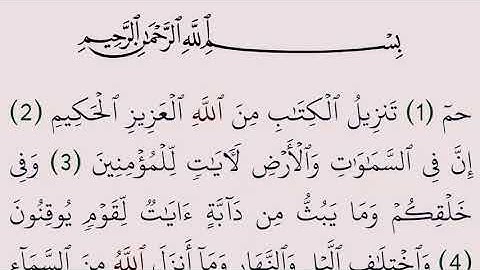 بِسْمِ ٱللَّهِ ٱلرَّحْمَٰنِ ٱلرَّحِيمِ
حمٓ (1) تَنزِيلُ ٱلْكِتَٰبِ مِنَ ٱللَّهِ ٱلْعَزِيزِ ٱلْحَكِيمِ (2)
إِنَّ فِى ٱلسَّمَٰوَٰتِ وَٱلْأَرْضِ لَءَايَٰتٍ لِّلْمُؤْمِنِينَ (3) وَفِى
خَلْقِكُمْ وَمَا يَبُثُّ مِن دَآبَّةٍ ءَايَٰتٌ لِّقَوْمٍ يُوقِنُونَ
(4) وَٱخْتِلَٰفِ ٱلَّيْلِ وَٱلنَّهَارِ وَمَآ أَنزَلَ ٱللَّهُ مِنَ ٱلسَّمَآءِ